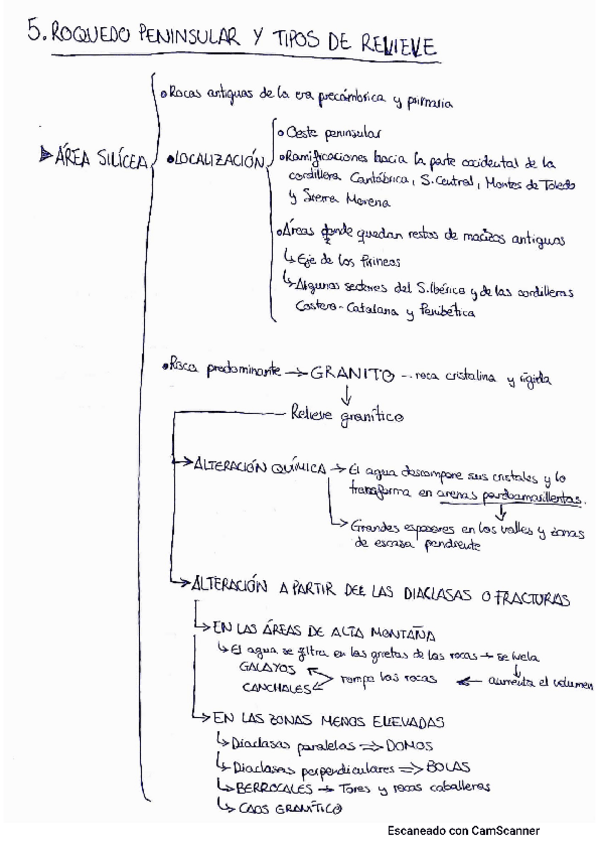 5. ROQUEDO PENINSULAR Y TIPOS DE RELIEVE
• Rocas antiguas de la era precámbrica y primaria
ÁREA SILÍCEA
• LOCALIZACIÓN
• Oeste peninsular
• Ramificaciones hacia la parte occidental de la
cordillera Cantábrica, S. Central, Montes de Toledo
y Sierra Morena
• Áreas donde quedan restos de macizos antiguos
↳ Eje de los Pirineos
↳ Algunos sectores del S. Ibérico y de las cordilleras
Costero-Catalana y Penibética
• Roca predominante → GRANITO - roca cristalina y rígida
↓
Relieve granítico
→ ALTERACIÓN QUÍMICA → El agua descompone sus cristales y lo
transforma en arenas pardoamarillentas.
↳ Grandes espesores en los valles y zonas
de escasa pendiente
→ ALTERACIÓN A PARTIR DE LAS DIACLASAS O FRACTURAS
↳ EN LAS ÁREAS DE ALTA MONTAÑA
↳ El agua se filtra en las grietas de las rocas → se hiela
GALAYOS
CANCHALES
rompe las rocas ← aumenta el volumen
↳ EN LAS ZONAS MENOS ELEVADAS
↳ Diaclasas paralelas ⇒ DOMOS
↳ Diaclasas perpendiculares ⇒ BOLAS
↳ BERROCALES → Tores y rocas caballeras
↳ CAOS GRANÍTICO
Escaneado con CamScanner